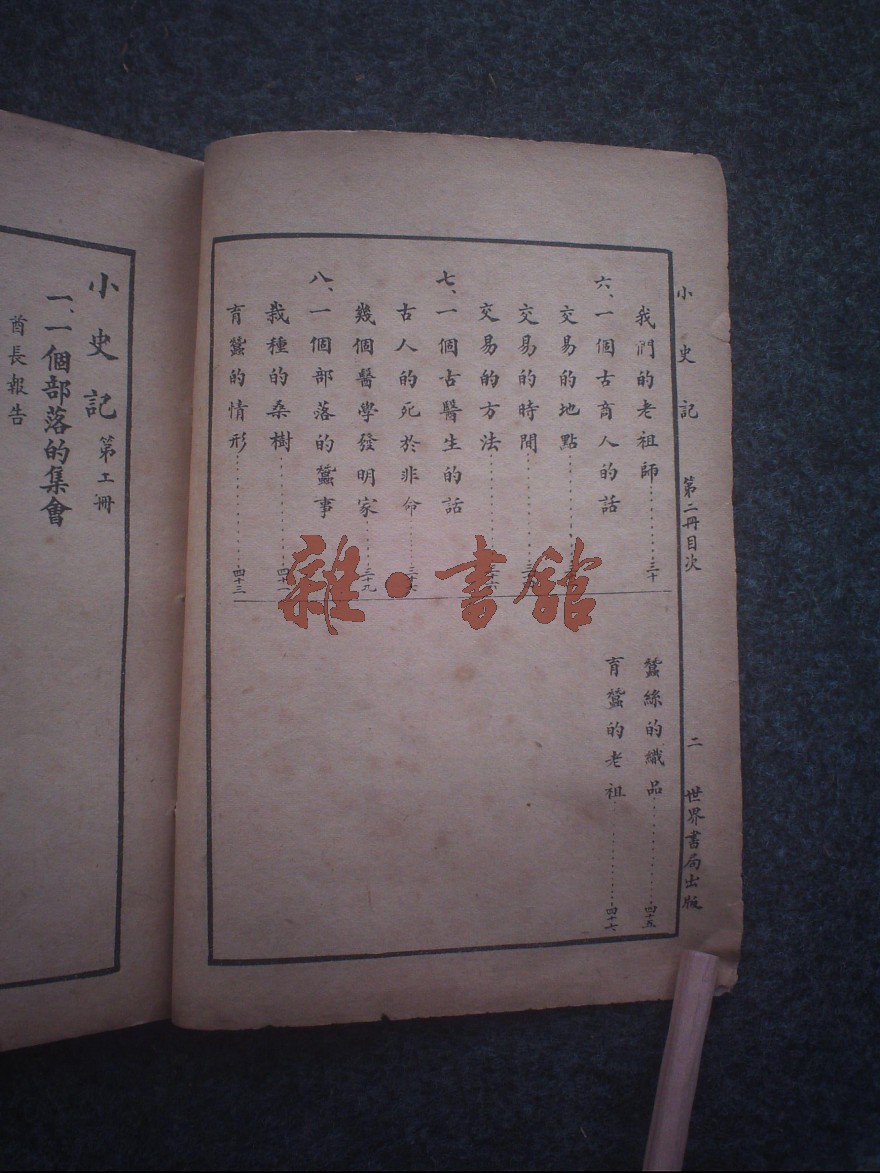 小史記 第二冊目次 二 世界書局出版
我們的老祖師 三十
六、一個古商人的話
交易的地點
交易的時間
交易的方法
七、一個古醫生的話
古人的死於非命
幾個醫學發明家 三十九
八、一個部落的蠶事
栽種的桑樹
育蠶的情形 四十三
蠶絲的織品 四十五
育蠶的老祖 四十七
小史記 第二冊
一、一個部落的集會
酋長報告
雜·書館